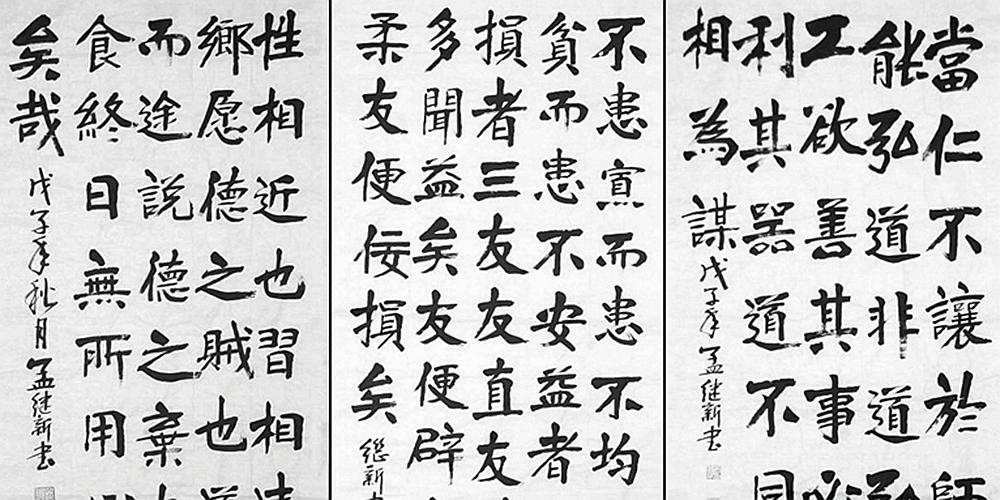 當仁不讓於師
能弘道非道弘
工欲善其事
利其器道不同
相為謀
戊子年孟继新书
不患寡而患不均
貧而患不安益者
損者三友友直友
多聞益矣友便辟
柔友便佞損矣
継新
性相近也習相遠
鄉愿德之賊也道
而途說德之棄
食終日無所用
矣哉
戊子年秋月孟继新书